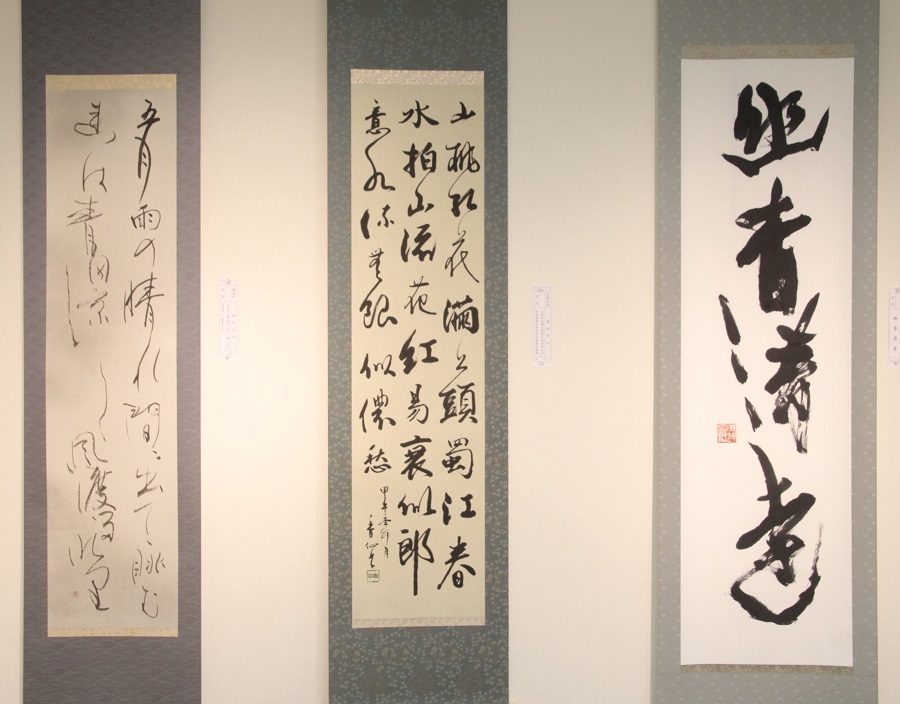 幽香清遠
山桃紅花滿上頭蜀江春
水拍山流花紅易衰似郎
意水流無限似儂愁
甲午
五月雨の晴れ間に出て眺む
れば青田涼しく風渡るなり